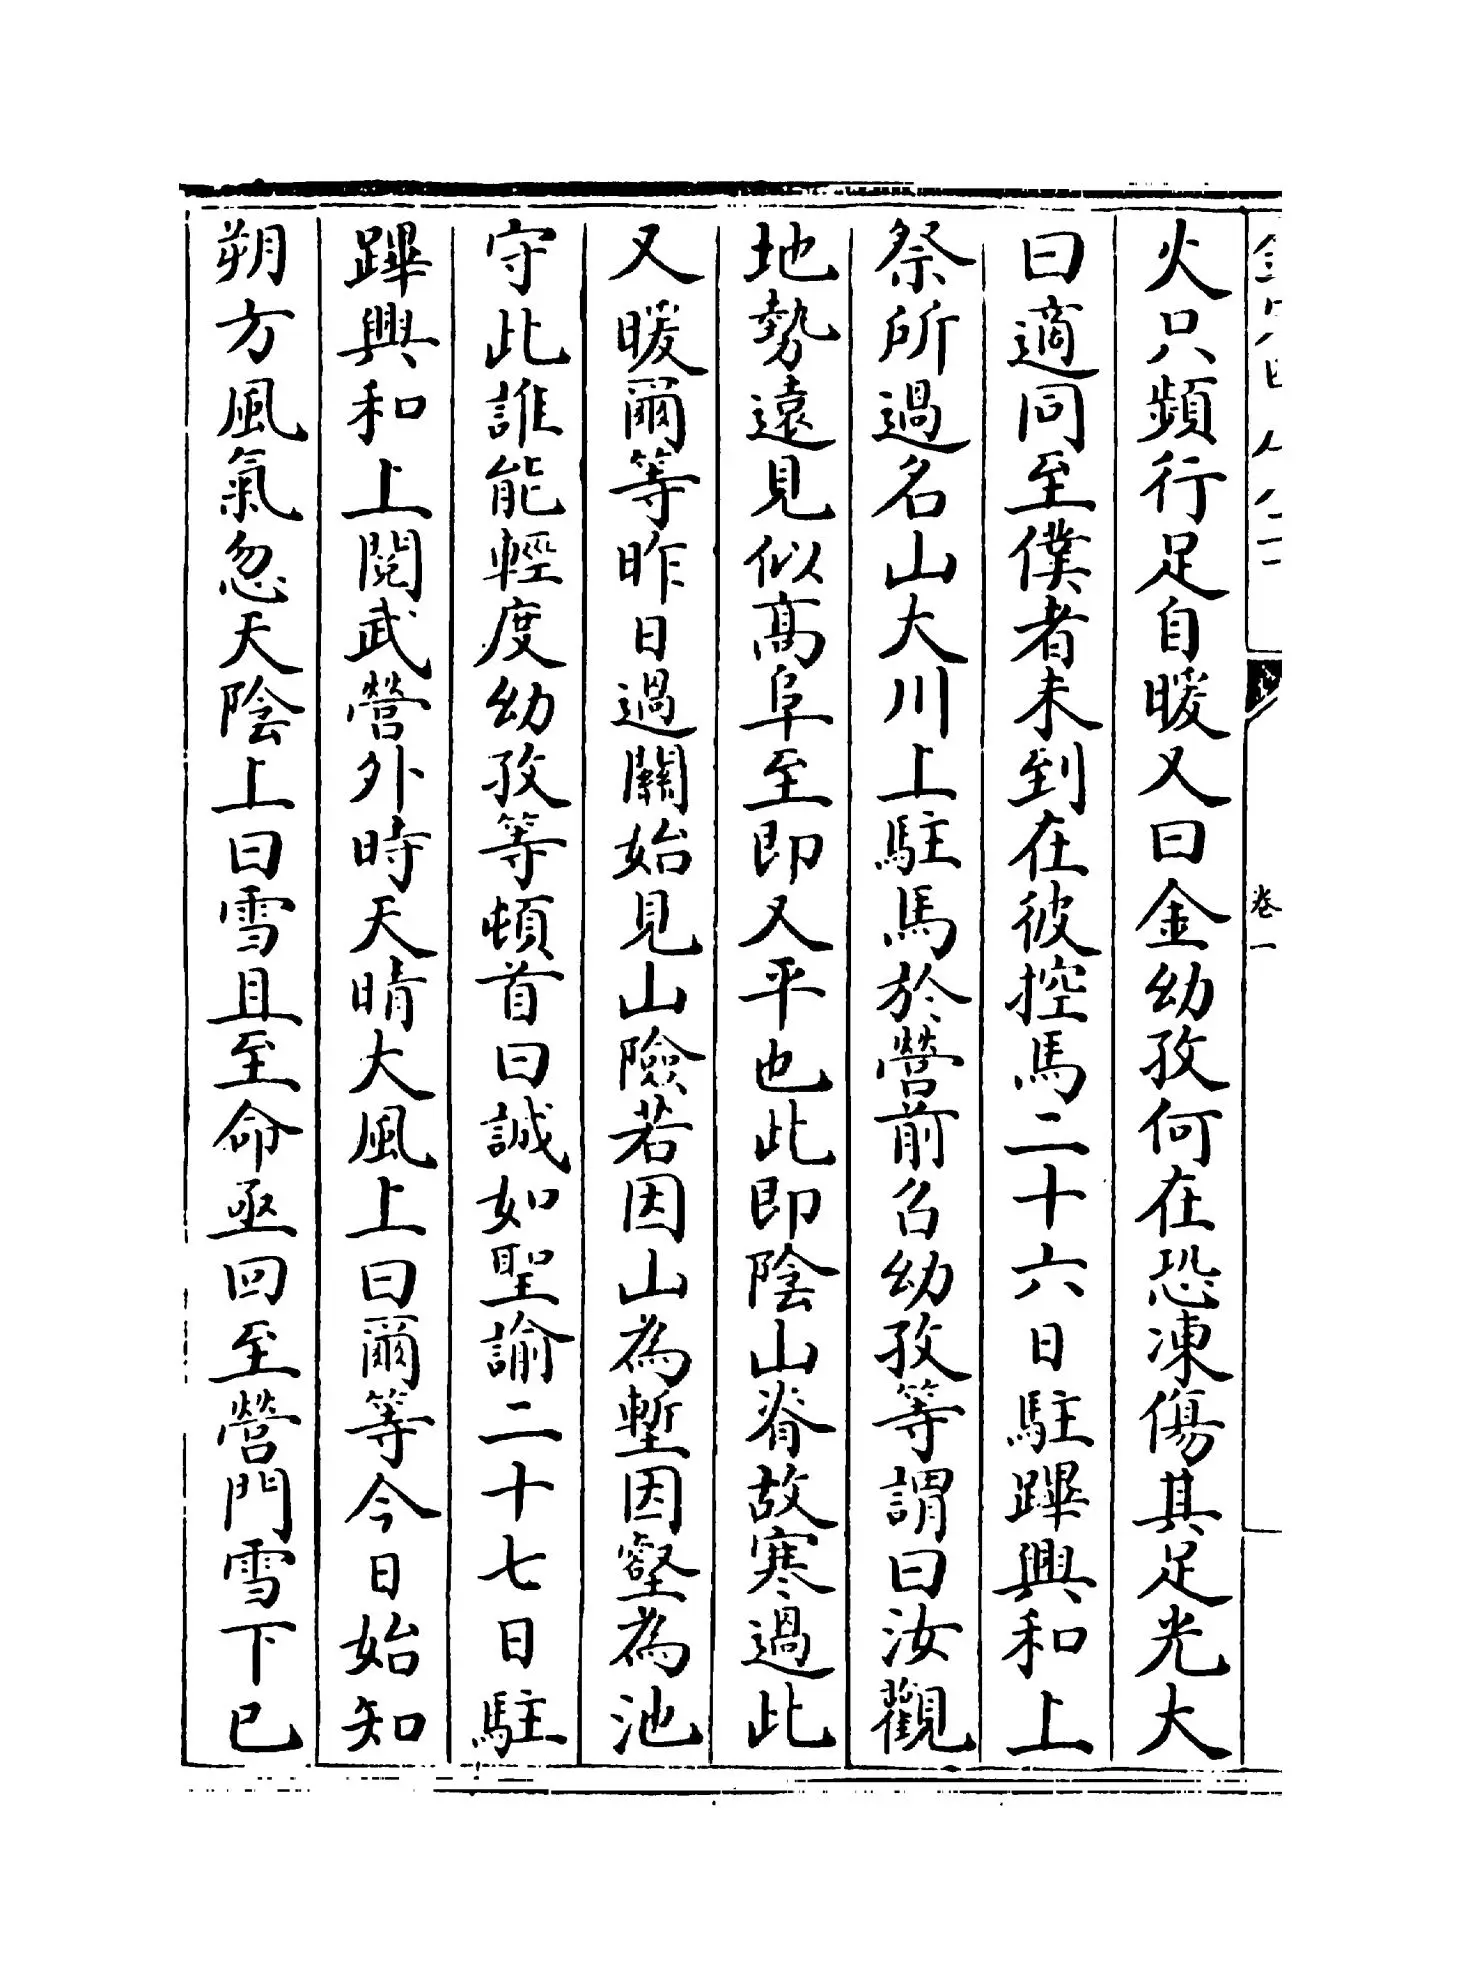 卷一
火只頻行足自暖又曰金幼孜何在恐凍傷其足光大
曰適同至僕者未到在彼控馬二十六日駐蹕興和上
祭所過名山大川上駐馬於營前召幼孜等謂曰汝觀
地勢遠見似高阜至即又平也此即陰山脊故寒過此
又暖爾等昨日過關始見山險若因山為塹因壑為池
守此誰能輕度幼孜等頓首曰誠如聖諭二十七日駐
蹕興和上閱武營外時天晴大風上曰爾等今日始知
朔方風氣忽天陰上曰雪且至命亟回至營門雪下已